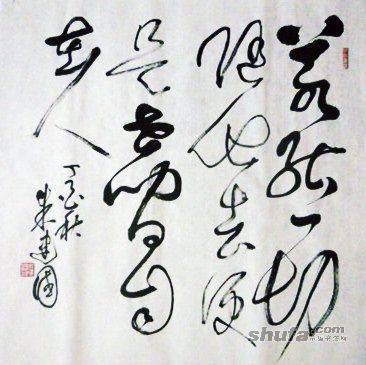 若能一切
随他去便
是世间自
在人
丁亥秋
朱建国
shufa.com